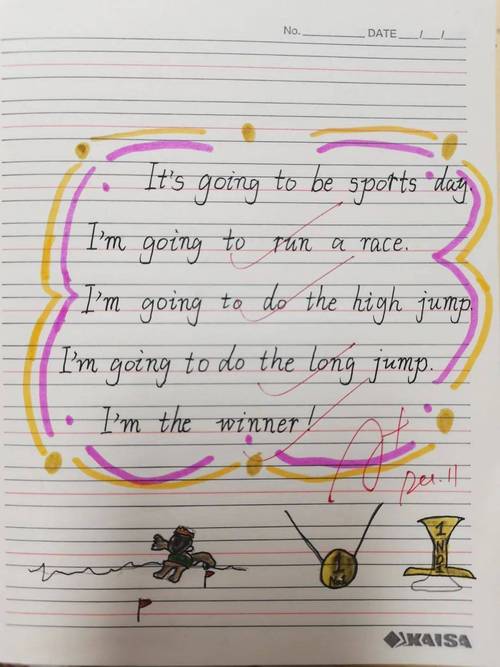 No. DATE / /
It's going to be sports day.
I'm going to run a race.
I'm going to do the high jump.
I'm going to do the long jump.
I'm the winner!
A+
Dec. 11
1
No1
1
NO1
KAISA